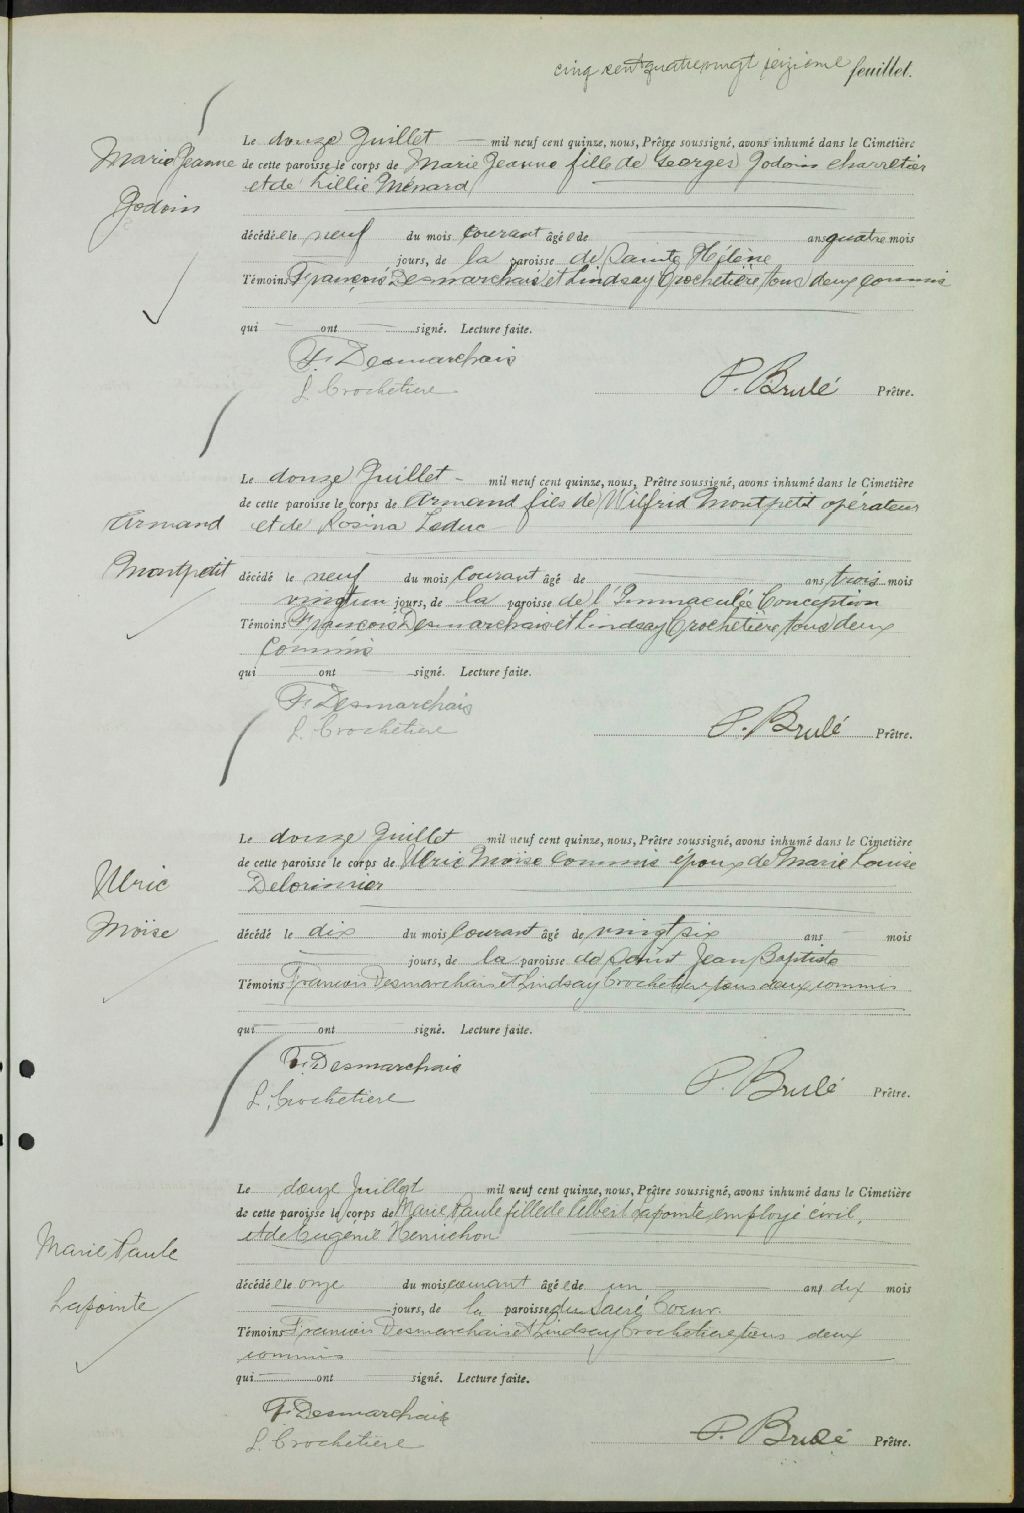 cinq cent quatre vingt seizième feuillet.
Le douze Juillet mil neuf cent quinze, nous, Prêtre soussigné, avons inhumé dans le Cimetière
Marie Jeanne
de cette paroisse le corps de Marie Jeanne fille de Georges Godoin charretier
et de Lillie Ménard
Godoin
décédé e le neuf du mois courant âgé e de ans quatre mois
jours, de la paroisse de Sainte Hélène
Témoins François Desmarchais et Lindsay Crochetière tous deux commis
qui ont signé. Lecture faite.
F. Desmarchais
L. Crochetiere
P. Brulé Prêtre.
Le douze Juillet mil neuf cent quinze, nous, Prêtre soussigné, avons inhumé dans le Cimetière
de cette paroisse le corps de Armand fils de Wilfrid Montpetit opérateur
Armand
et de Rosina Leduc
Montpetit
décédé le neuf du mois courant âgé de ans trois mois
vingt un jours, de la paroisse de l'Immaculée Conception
Témoins François Desmarchais et Lindsay Crochetière tous deux
commis
qui ont signé. Lecture faite.
F. Desmarchais
L. Crochetiere
P. Brulé Prêtre.
Le douze Juillet mil neuf cent quinze, nous, Prêtre soussigné, avons inhumé dans le Cimetière
de cette paroisse le corps de Ulric Moïse commis époux de Marie Louise
Ulric
Delorimier
Moïse
décédé le dix du mois courant âgé de vingt six ans mois
jours, de la paroisse de Saint Jean Baptiste
Témoins Francois Desmarchais et Lindsay Crochetiere tous deux commis
qui ont signé. Lecture faite.
F. Desmarchais
L. Crochetiere
P. Brulé Prêtre.
Le douze Juillet mil neuf cent quinze, nous, Prêtre soussigné, avons inhumé dans le Cimetière
de cette paroisse le corps de Marie Paule fille de Albert Lapointe employé civil,
et de Eugénie Henrichon
Marie Paule
Lapointe
décédé e le onze du mois courant âgé e de un ans dix mois
jours, de la paroisse du Sacré Coeur.
Témoins Francois Desmarchais et Lindsay Crochetiere tous deux
commis
qui ont signé. Lecture faite.
F. Desmarchais
L. Crochetière
P. Brulé Prêtre.